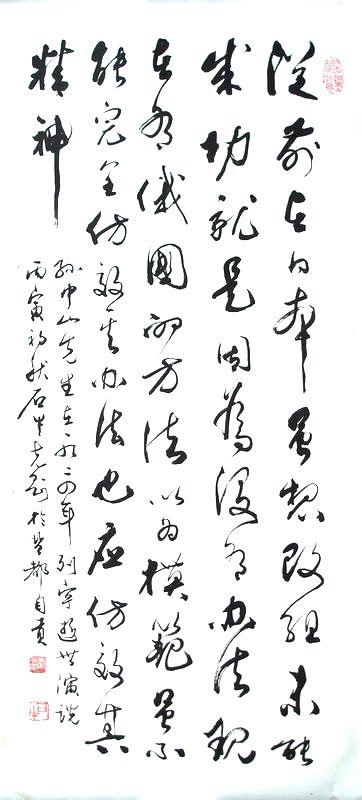 從前在日本虽想改组未能
成功就是因為没有办法現
在有俄國的方法以为模範虽不
能完全仿效其办法也应仿效其
精神
孙中山先生在一九二四年列宁逝世演说
丙寅初秋石於盐都自贡